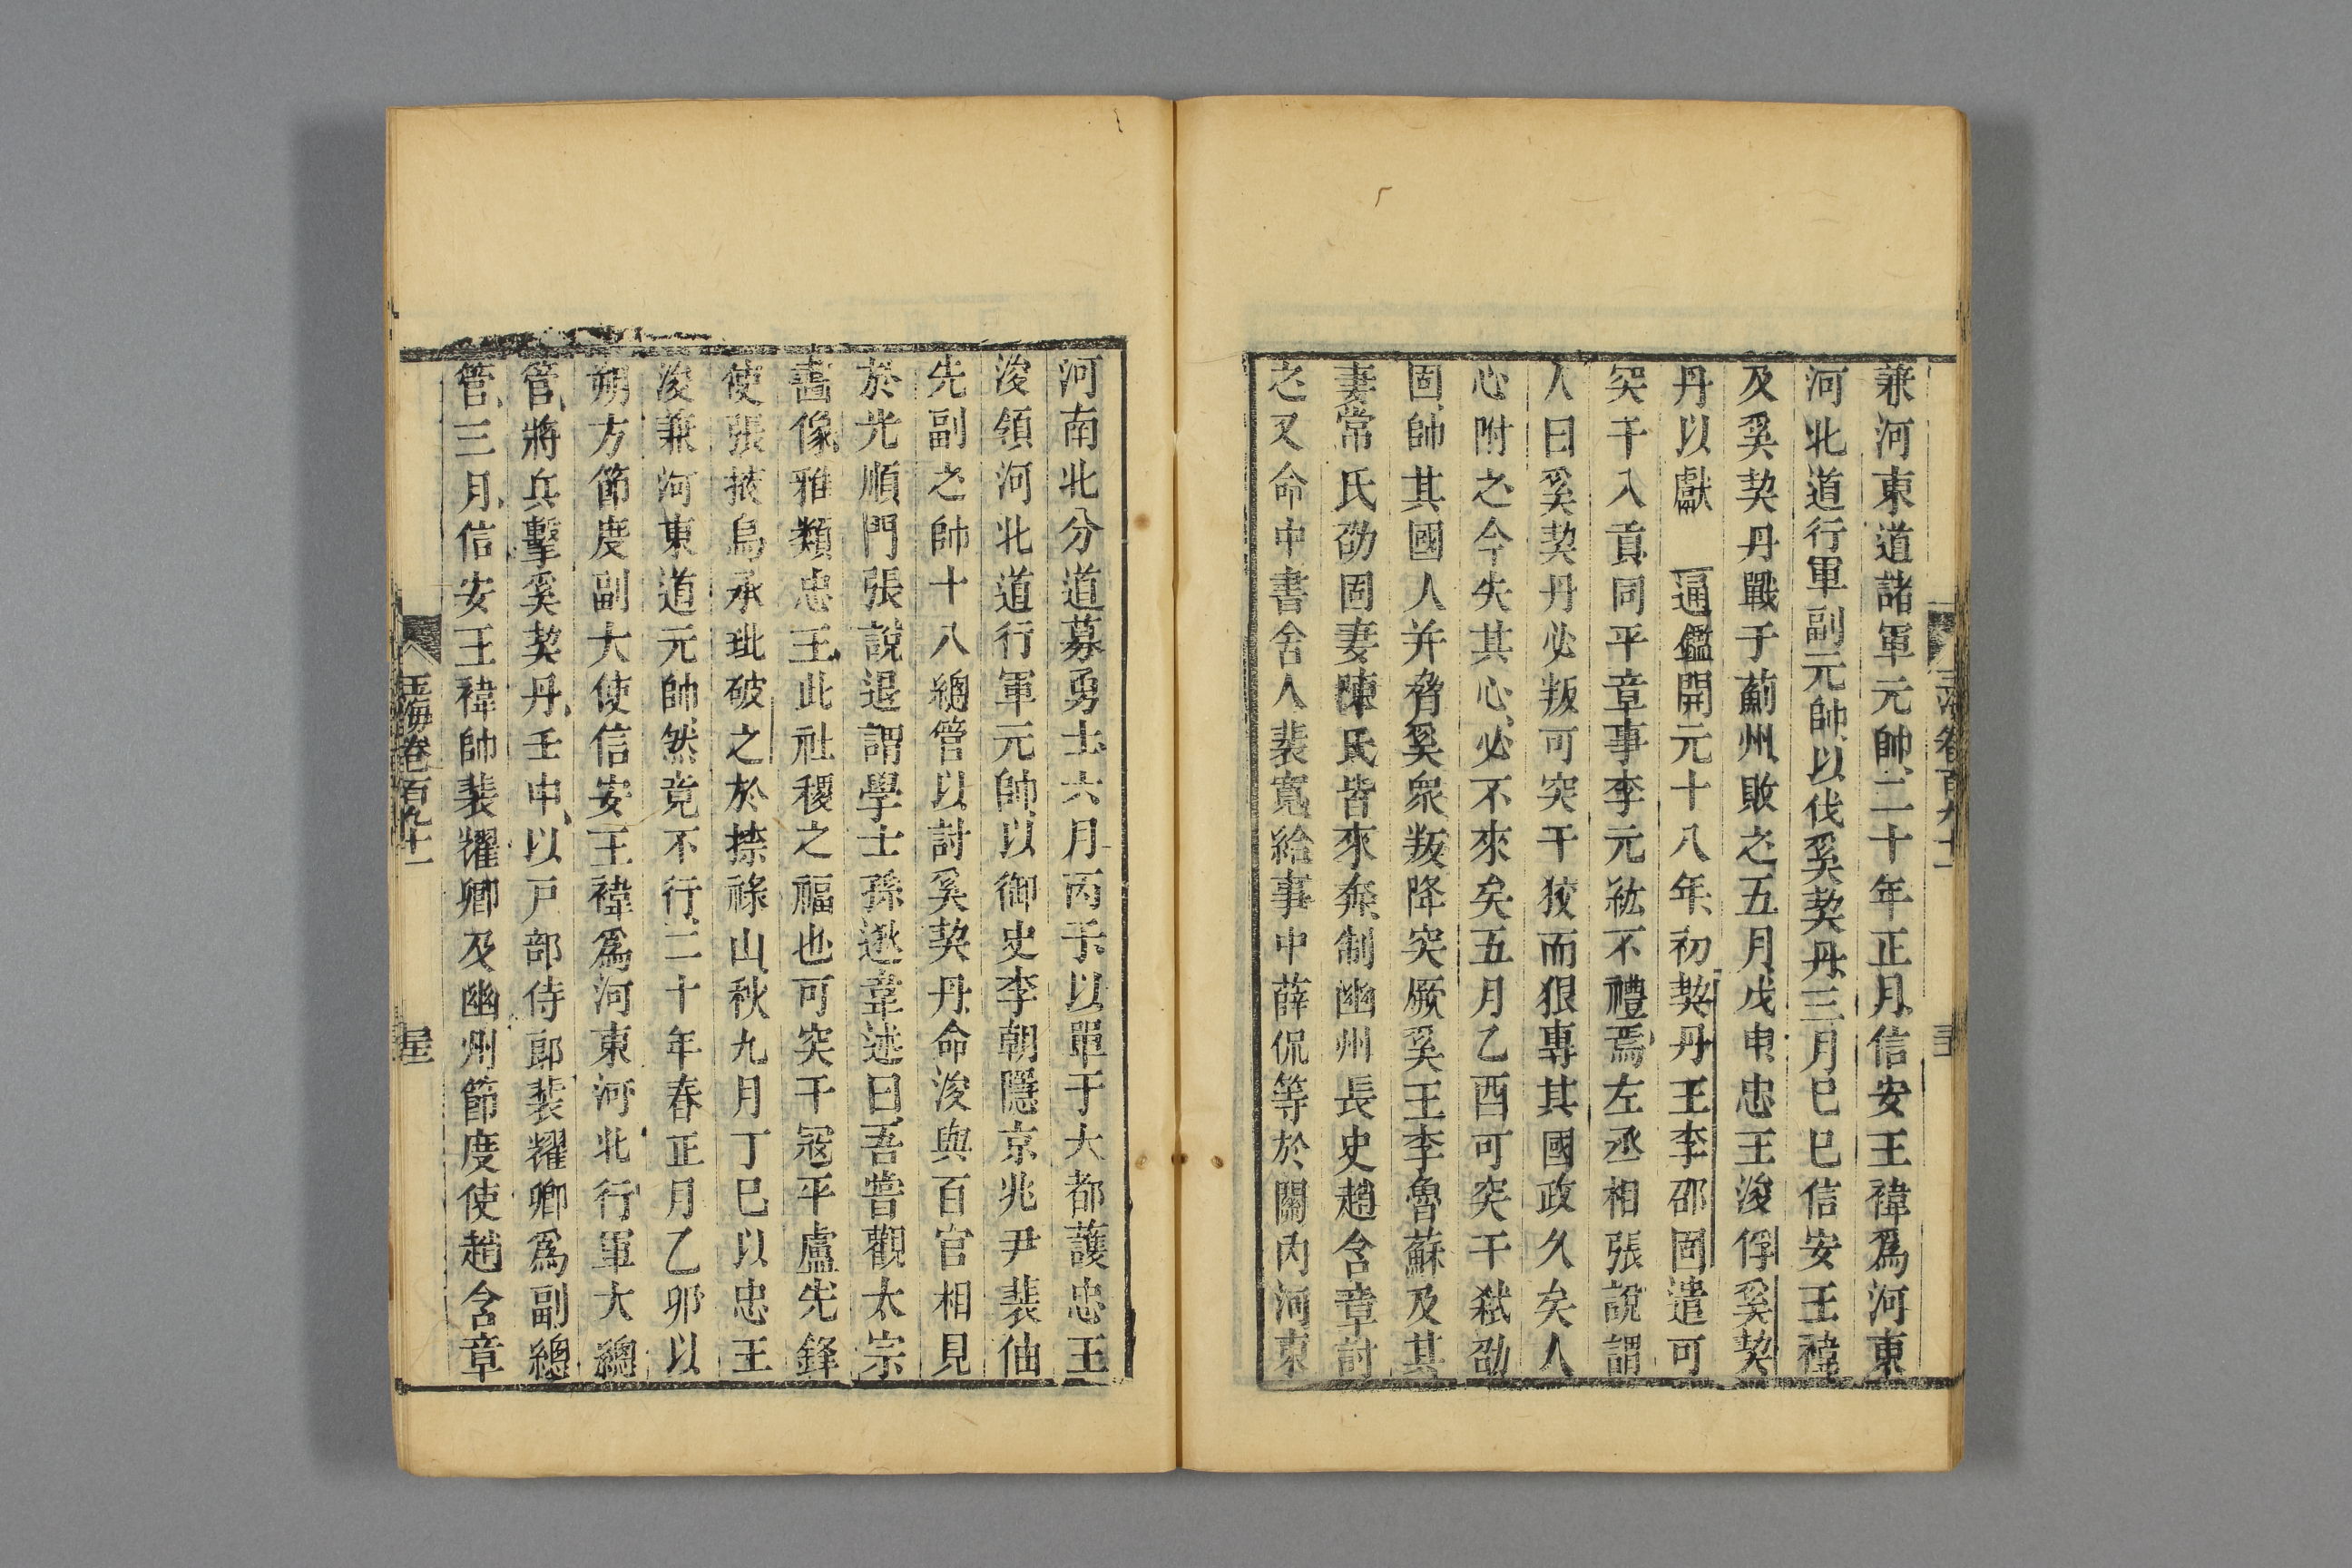 玉海卷百九十一
兼河東道諸軍元帥二十年正月信安王禕爲河東
河北道行軍副元帥以伐奚契丹三月巳巳信安王禕
及奚契丹戰于薊州敗之五月戊申忠王浚俘奚契
丹以獻 通鑑開元十八年初契丹王李邵固遣可
突干入貢同平章事李元紘不禮焉左丞相張說謂
人曰奚契丹必叛可突干狡而狠專其國政久矣人
心附之今失其心必不來矣五月乙酉可突干弑劭
固帥其國人并脅奚衆叛降突厥奚王李魯蘇及其
妻常氏劭固妻陳氏皆來奔制幽州長史趙含章討
之又命中書舍人裴寬給事中薛侃等於關內河東
河南北分道募勇士六月丙子以單于大都護忠王
浚領河北道行軍元帥以御史李朝隱京兆尹裴伷
先副之帥十八總管以討奚契丹命浚與百官相見
於光順門張說退謂學士孫逖韋述曰吾嘗觀太宗
畫像雅類忠王此社稷之福也可突干冦平盧先鋒
使張掖烏承玼破之於捺祿山秋九月丁巳以忠王
浚兼河東道元帥然竟不行二十年春正月乙卯以
朔方節度副大使信安王禕爲河東河北行軍大總
管將兵擊奚契丹壬申以戸部侍郎裴耀卿爲副總
管三月信安王禕帥裴耀卿及幽州節度使趙含章
玉海卷百九十一